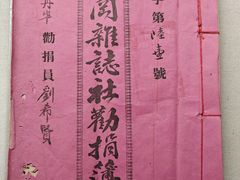 字第陸壹號
閣雜誌社勸捐簿
勸捐員劉希賢